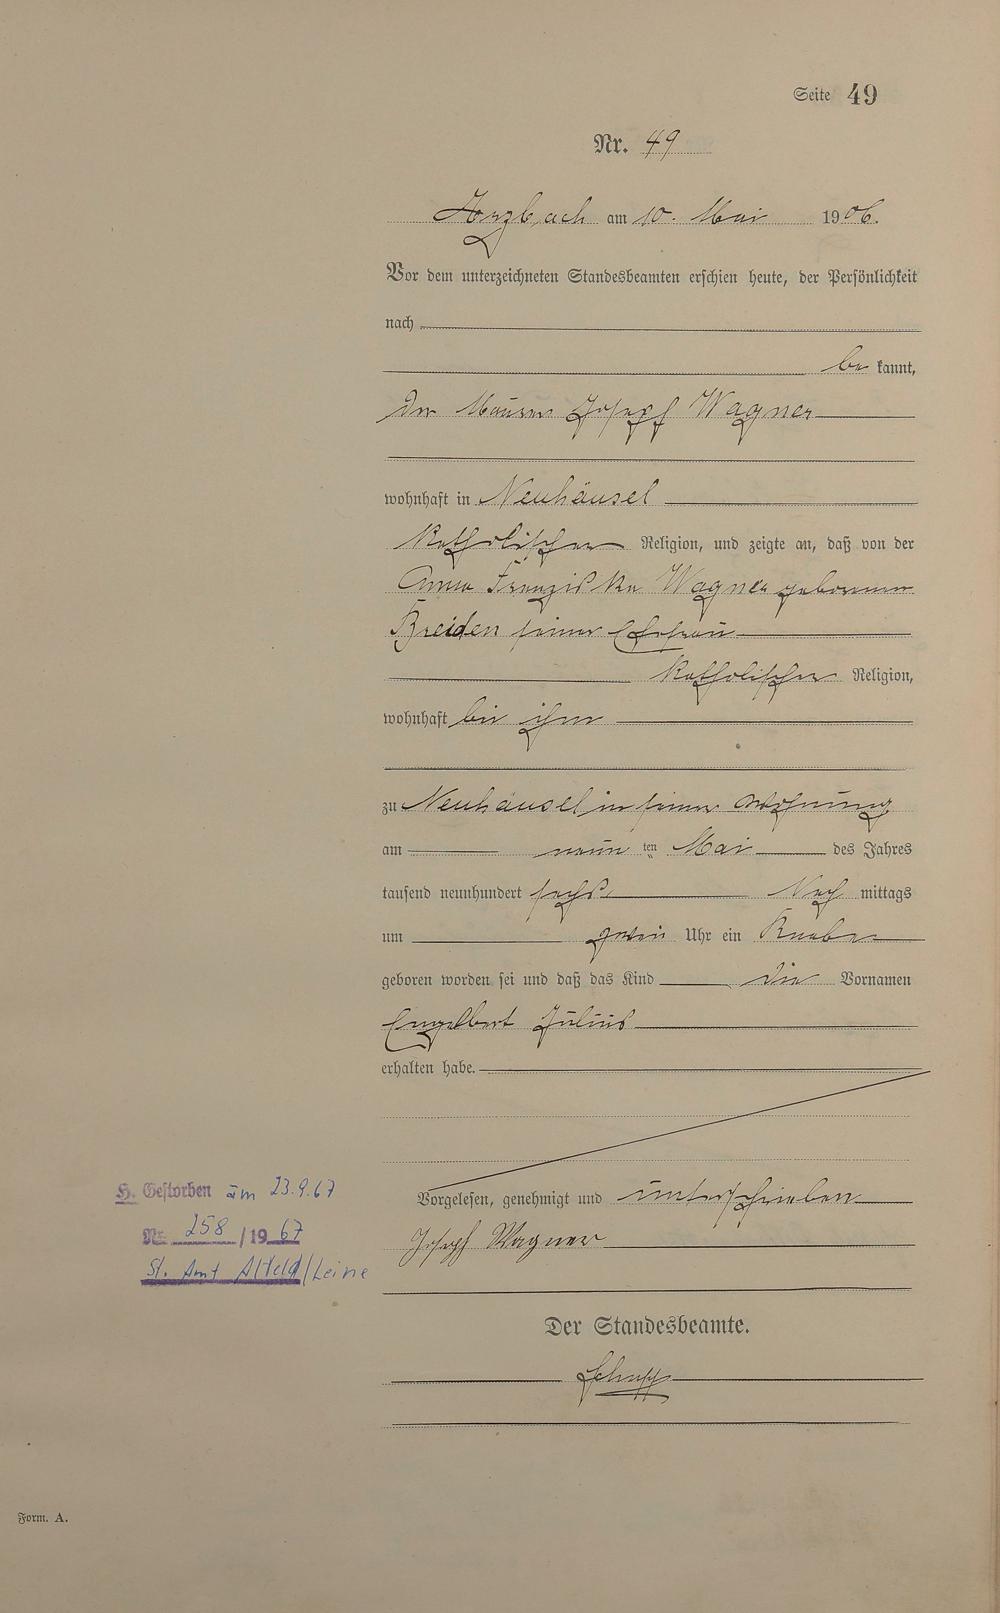 Seite 49
Nr. 49
Arzbach am 10. Mai 1906.
Vor dem unterzeichneten Standesbeamten erschien heute, der Persönlichkeit
nach
be kannt,
der Maurer Josef Wagner
wohnhaft in Neuhäusel
katholischer Religion, und zeigte an, daß von der
Anna Franziska Wagner geborenen
Breiden seiner Ehefrau
katholischer Religion,
wohnhaft bei ihm
zu Neuhäusel in seiner Wohnung
am neun ten Mai des Jahres
tausend neunhundert sechs Nach mittags
um zwei Uhr ein Knabe
geboren worden sei und daß das Kind die Vornamen
Engelbert Julius
erhalten habe.
H. Gestorben am 23.9.67
Nr. 258/1967
St. Amt Alfeld/Leine
Vorgelesen, genehmigt und unterschrieben
Joseph Wagner
Der Standesbeamte.
Form. A.